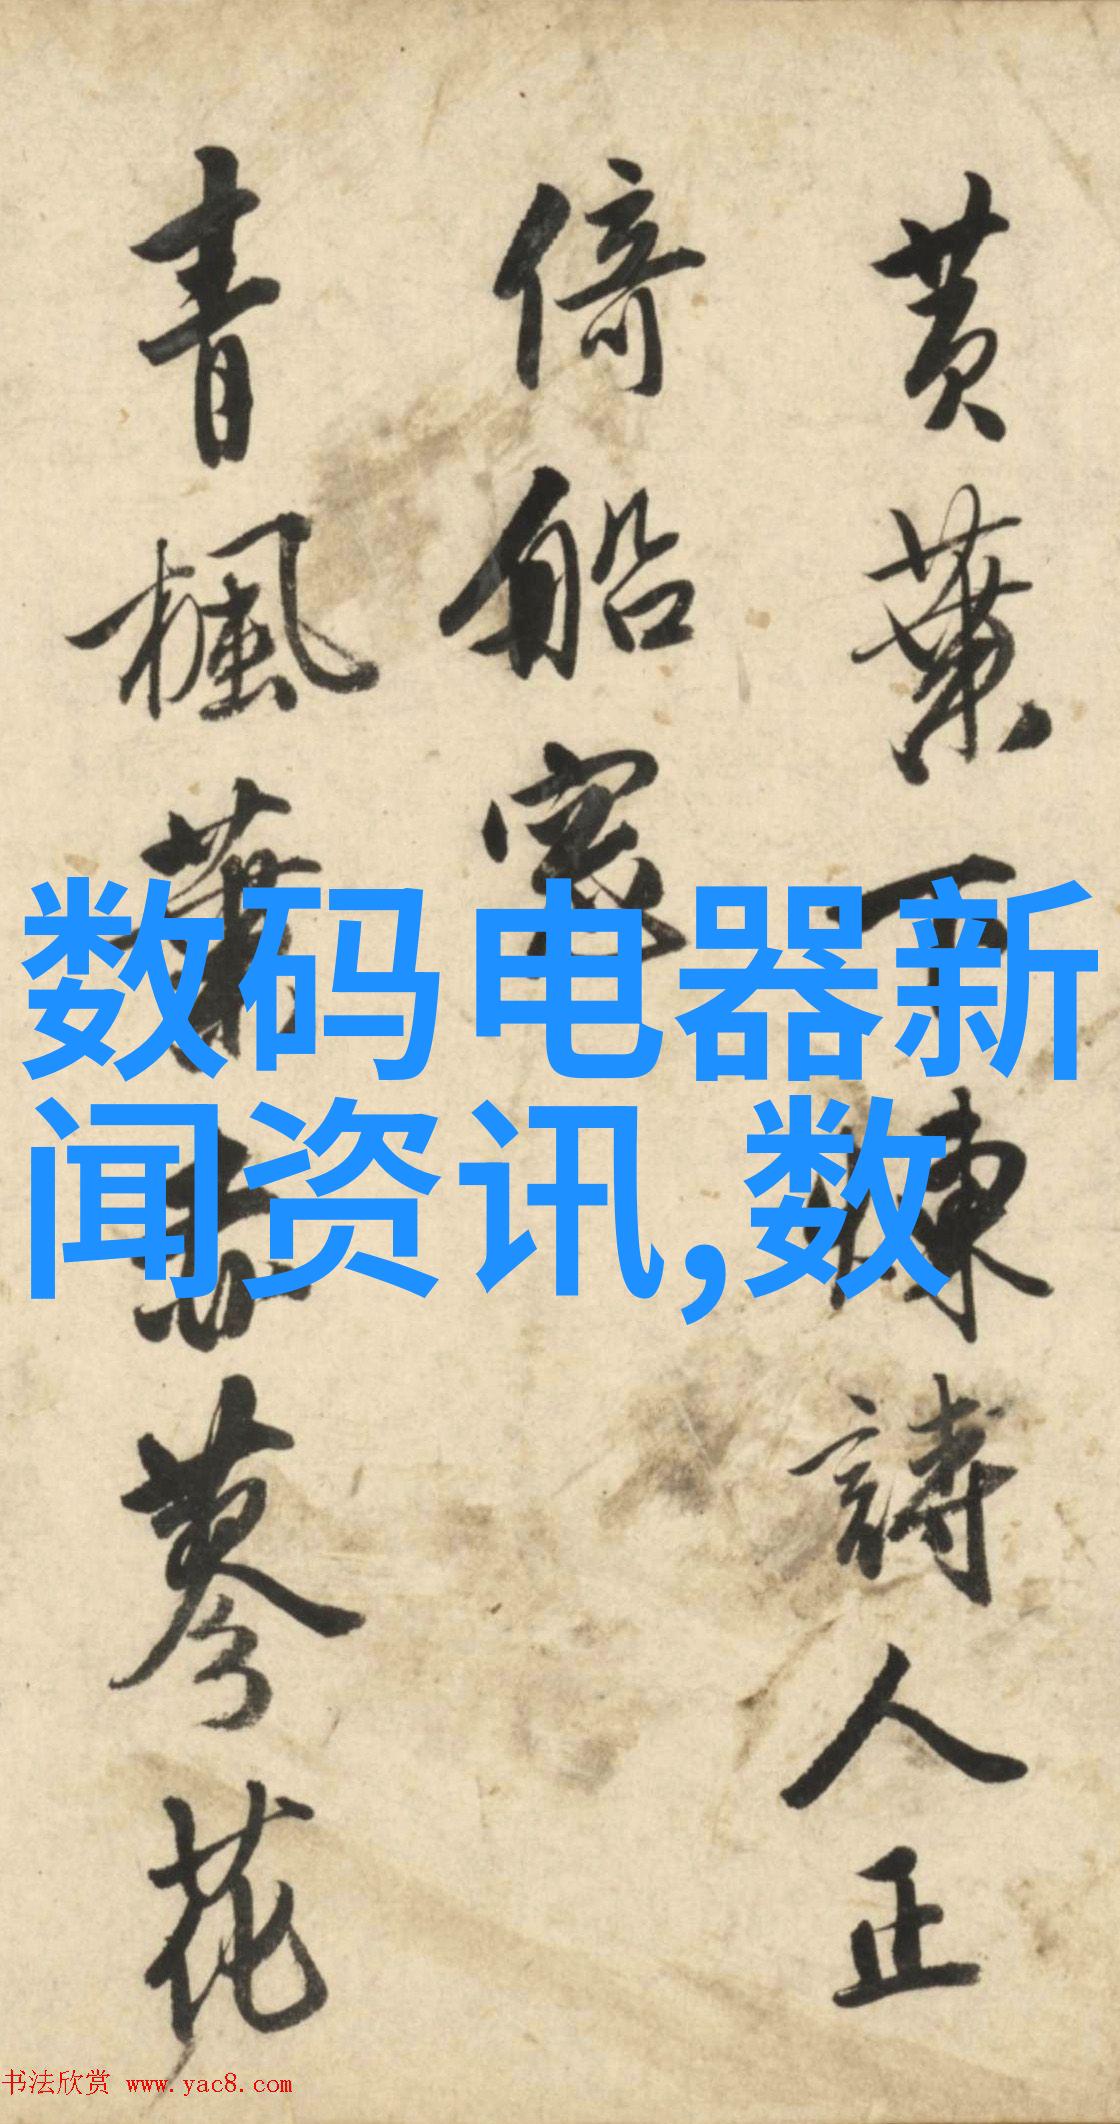 黄葉下詩人正
倚船窓
青楓葉蓼花
数码电器新
闻资讯,数
书法欣赏 www.yac8.com